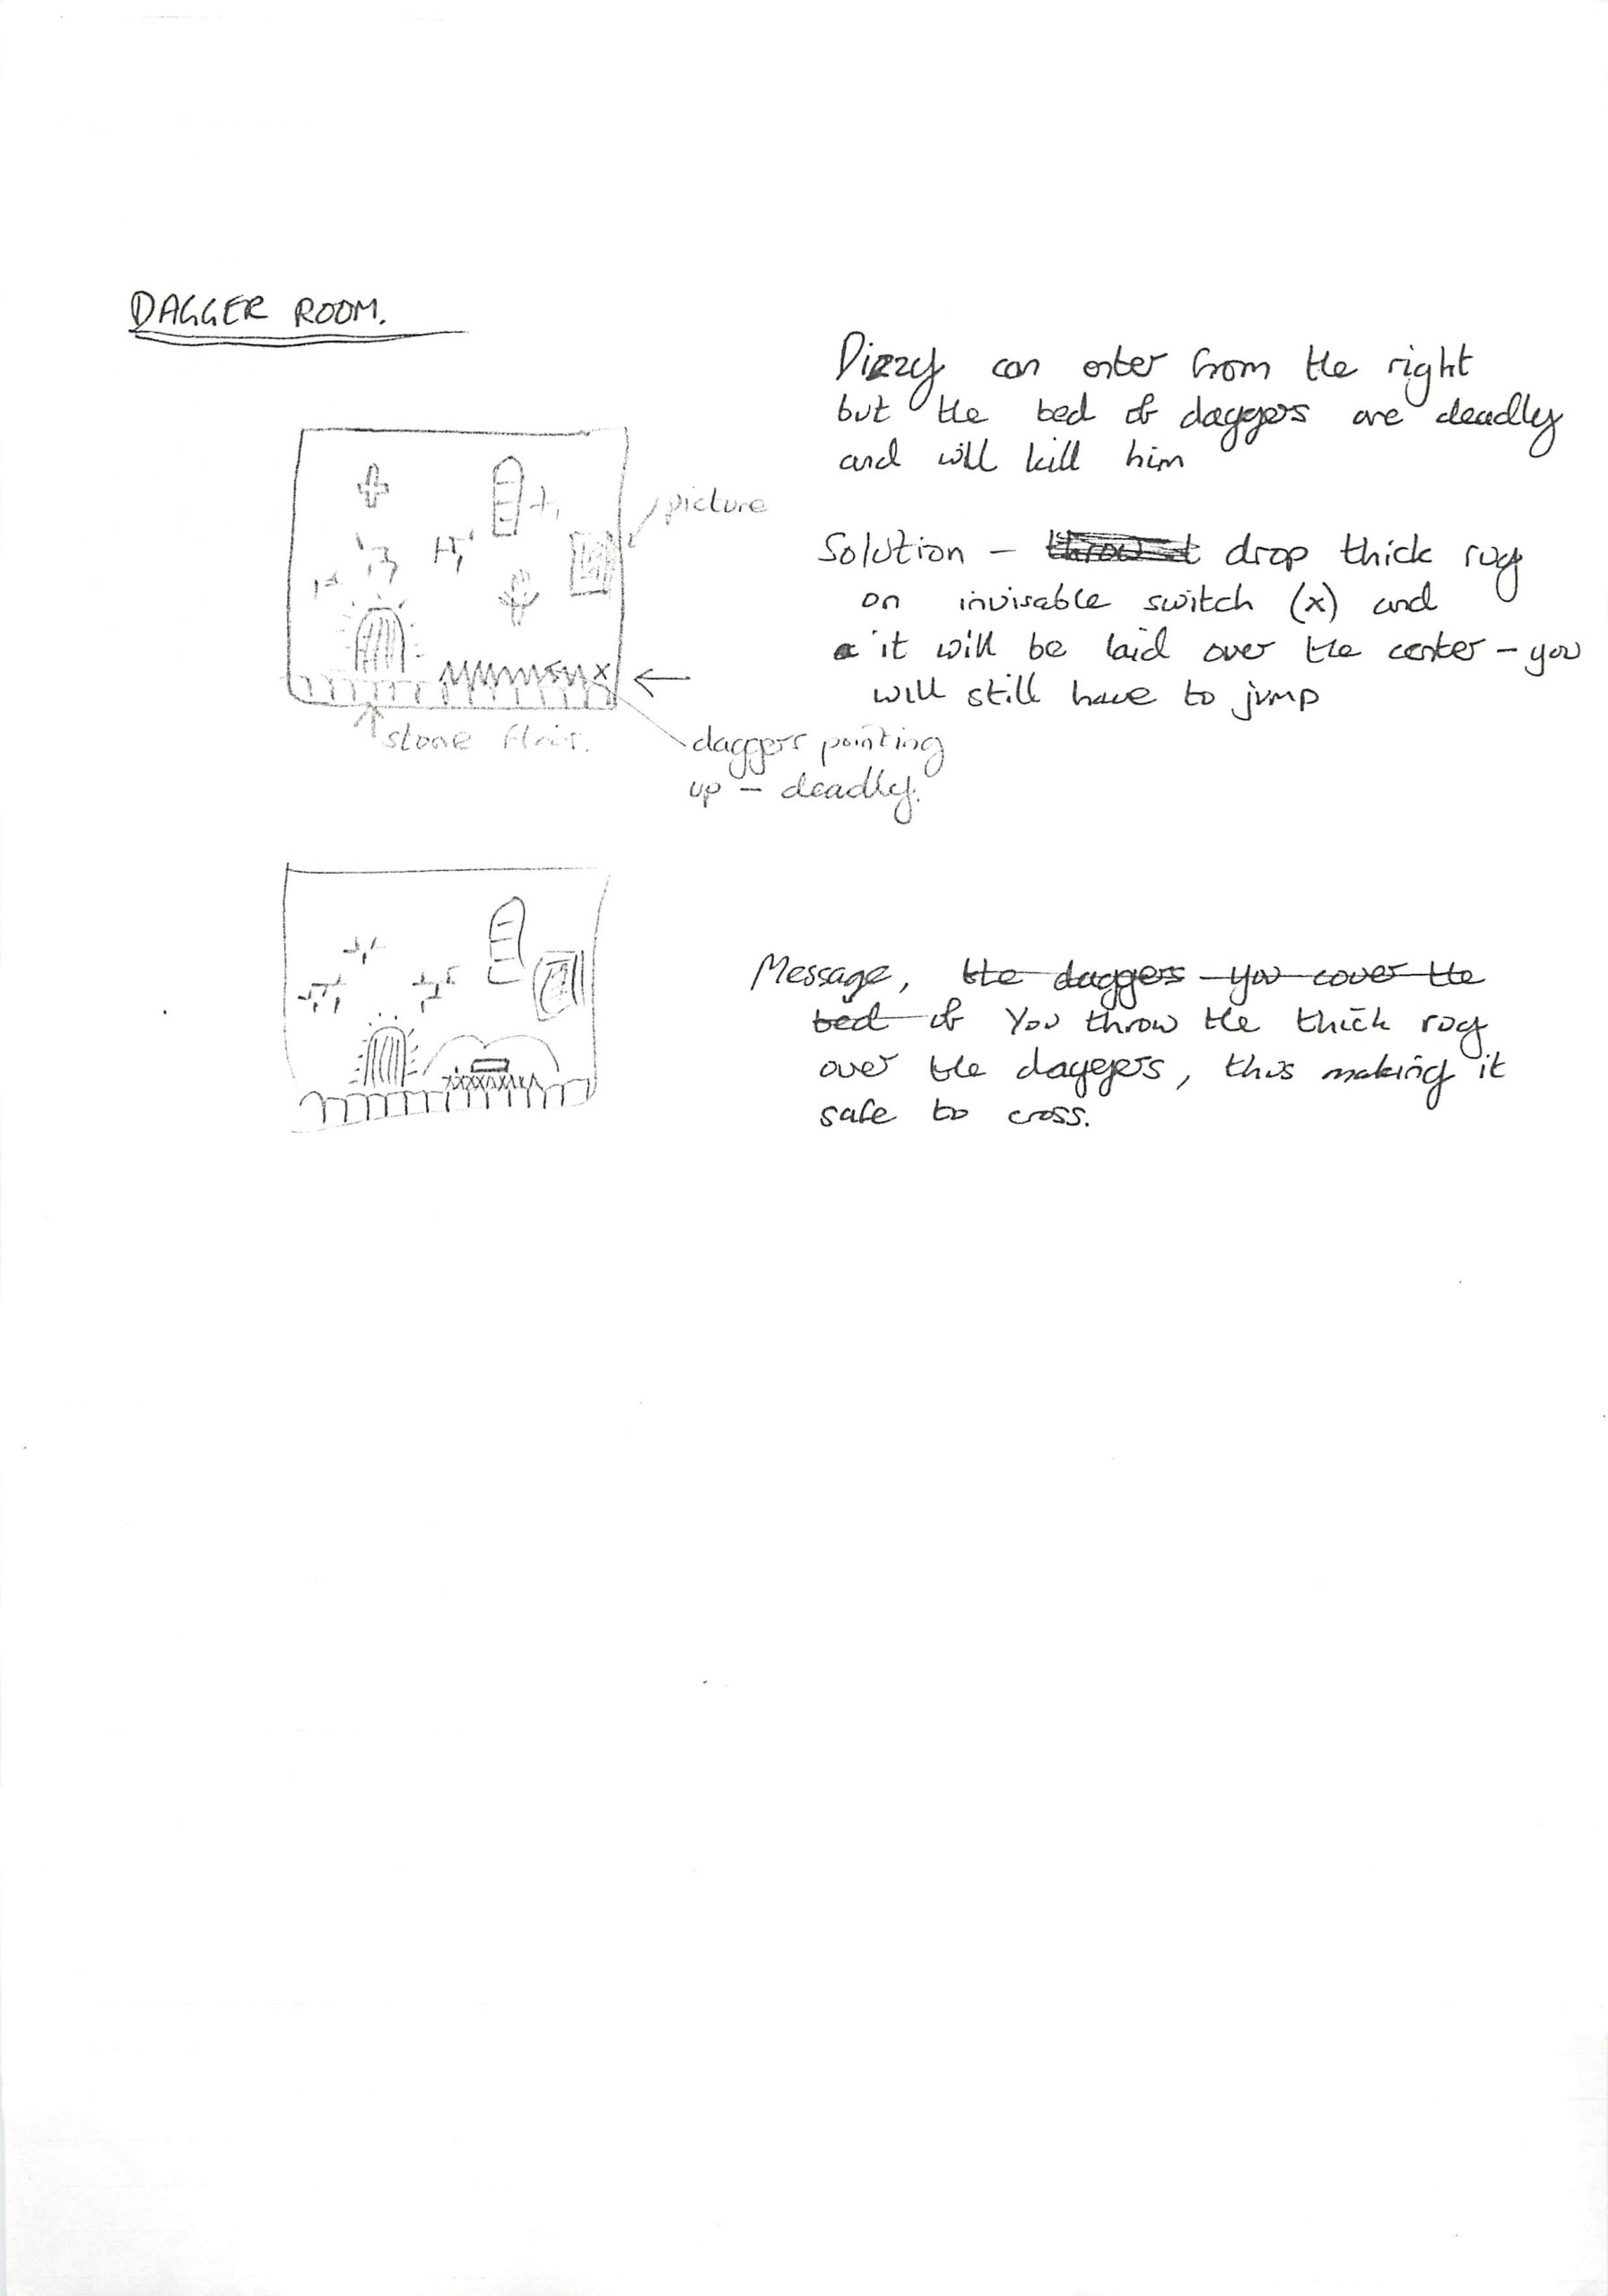 DAGGER ROOM.
Dizzy can enter from the right
but the bed of daggers are deadly
and will kill him
picture
Solution - throw it drop thick rug
on invisable switch (x) and
it will be laid over the center - you
will still have to jump
x
stone floor.
daggers pointing
up - deadly.
Message, the daggers you cover the
bed of You throw the thick rug
over the daggers, thus making it
safe to cross.